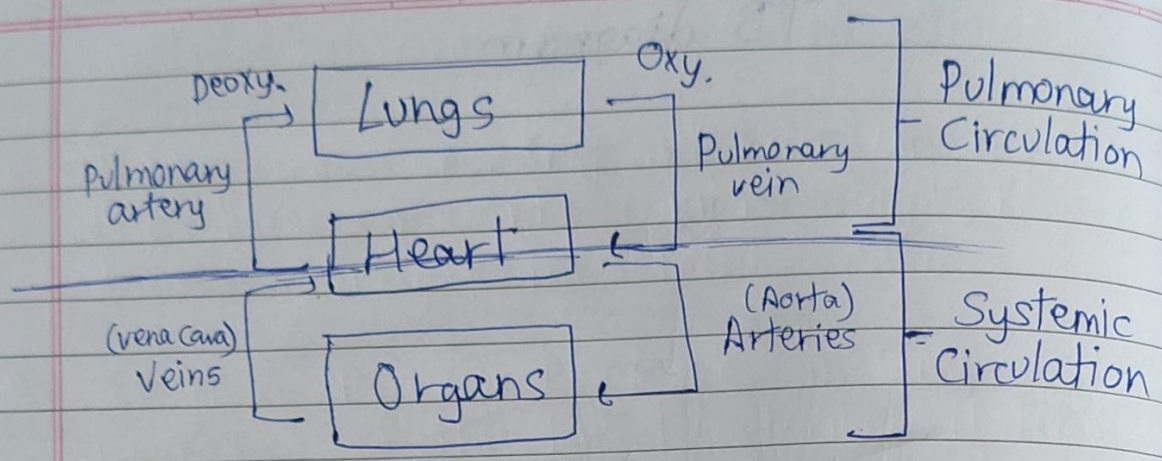 Deoxy.
Lungs
Oxy.
Pulmonary
Circulation
Pulmonary
artery
Pulmonary
vein
Heart
(vena cava)
Veins
(Aorta)
Arteries
Organs
Systemic
Circulation